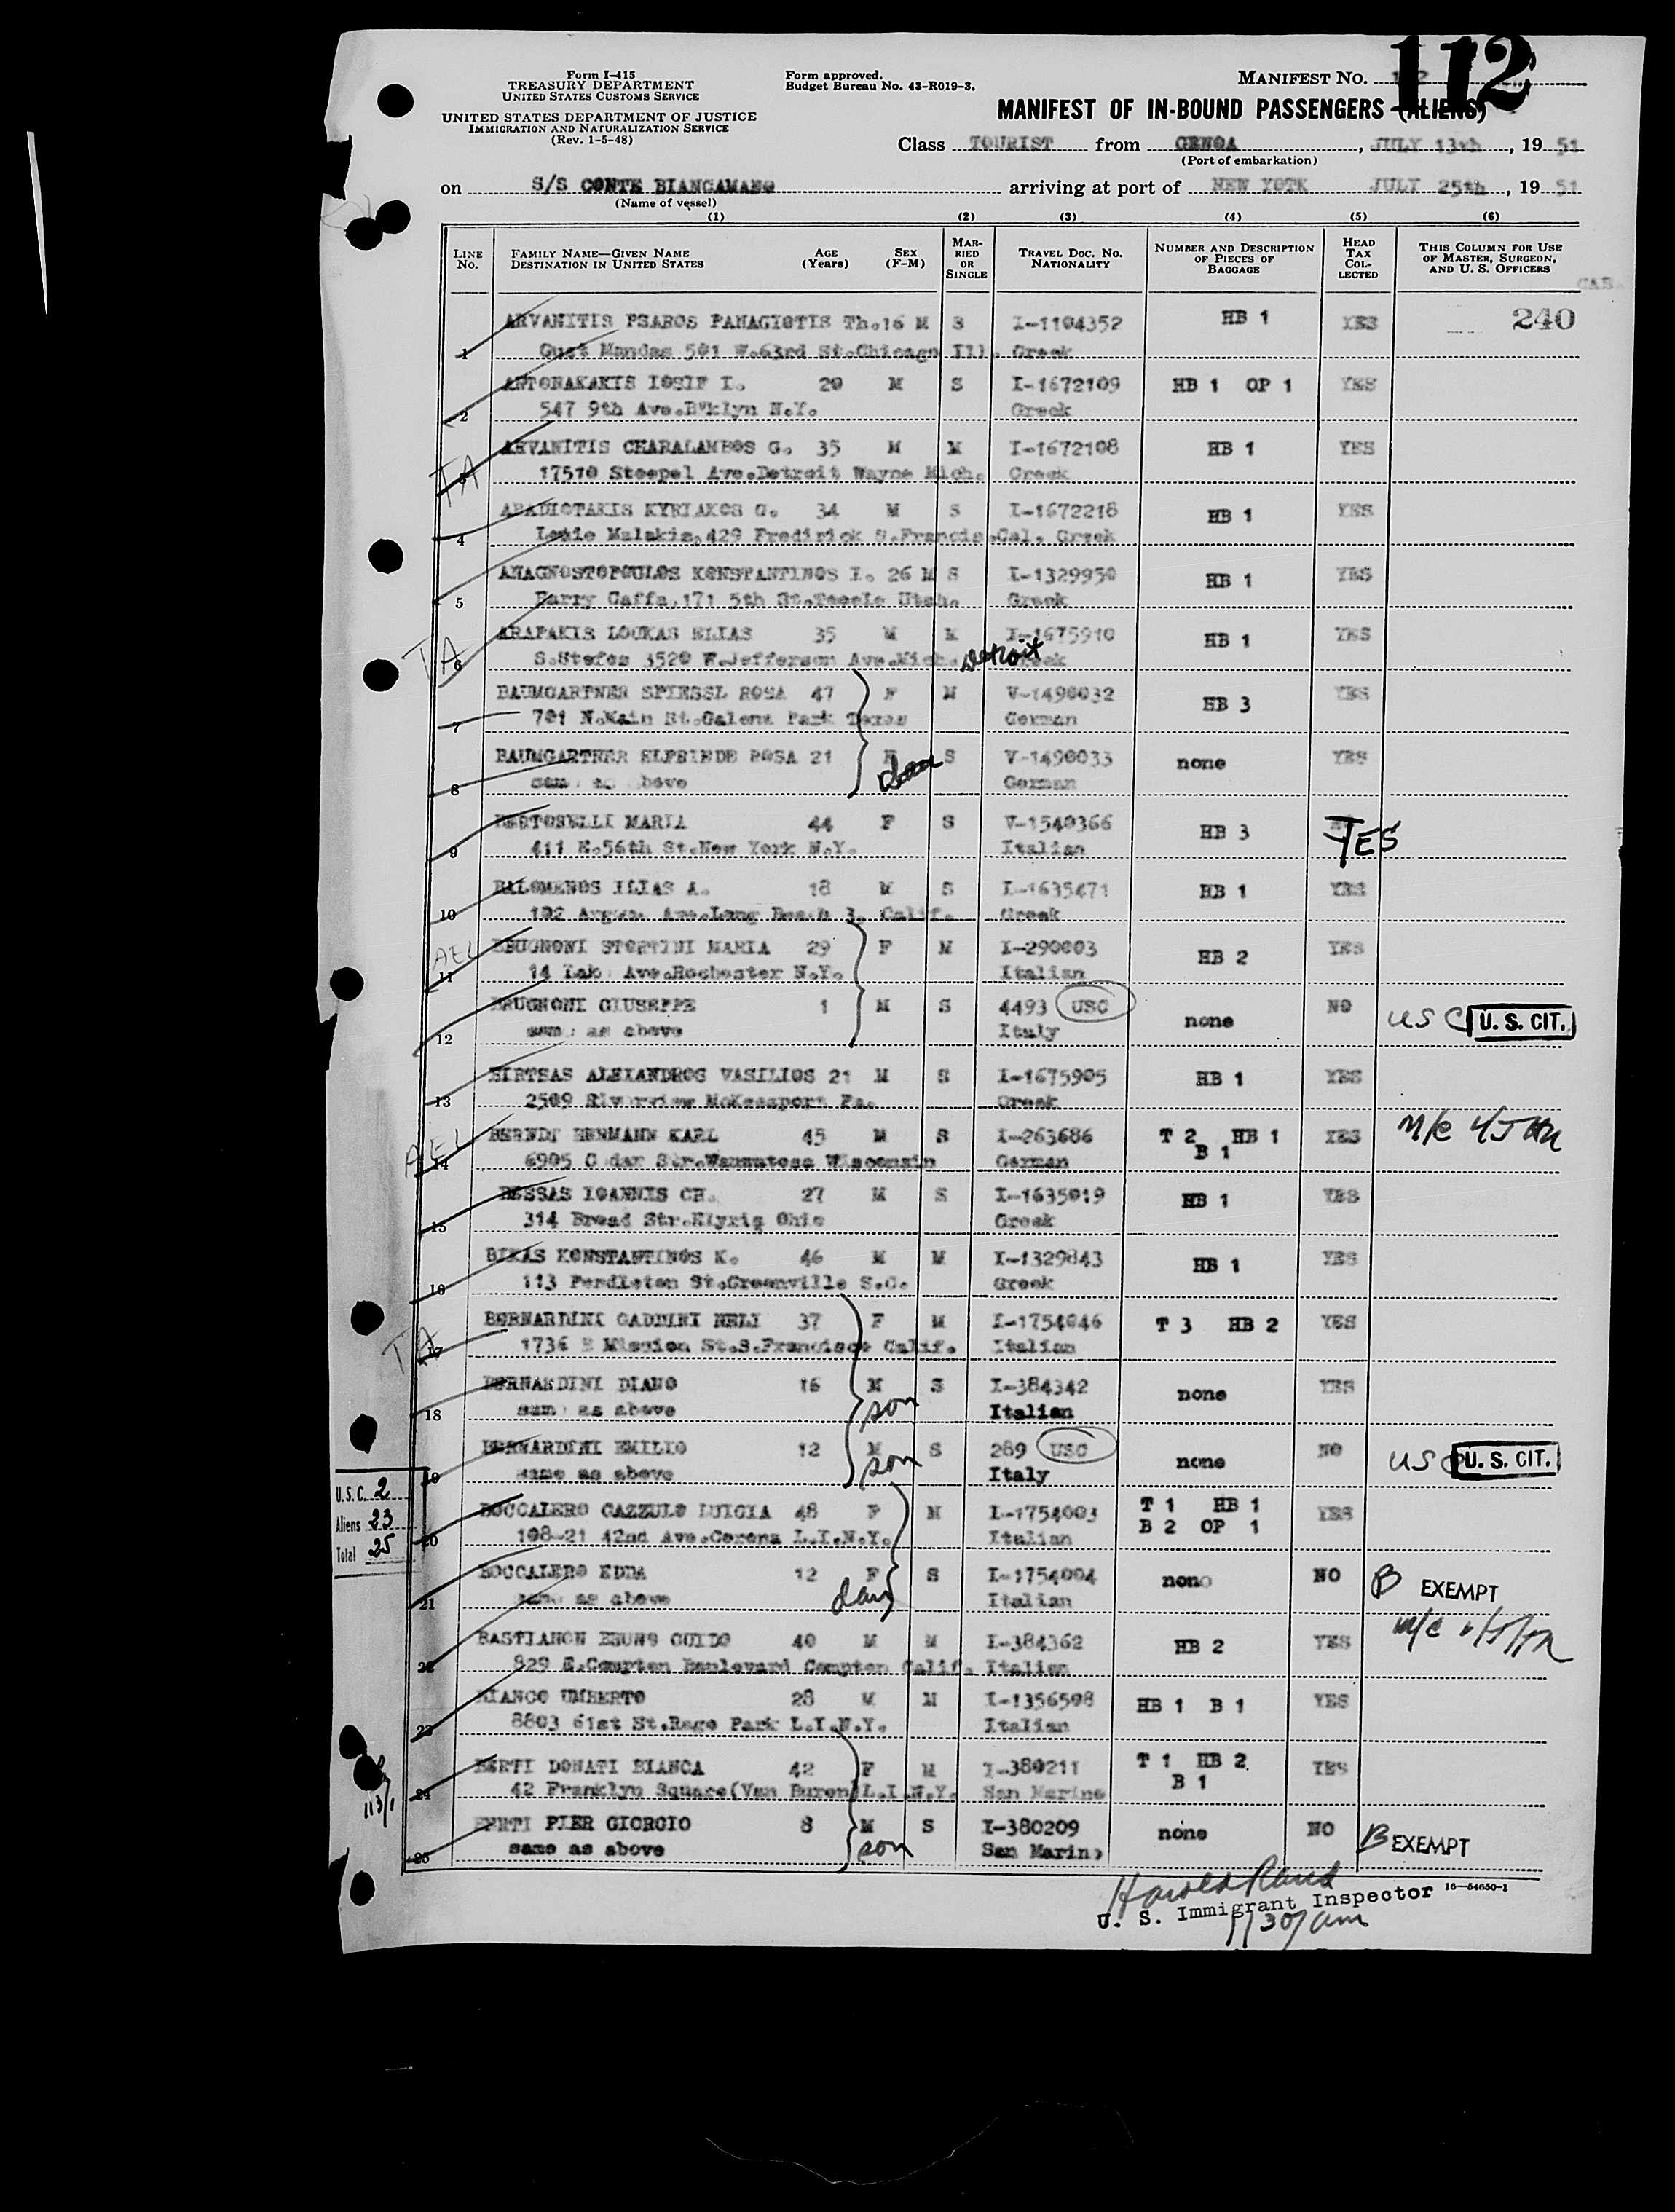 112
Form I-415
TREASURY DEPARTMENT
UNITED STATES CUSTOMS SERVICE
UNITED STATES DEPARTMENT OF JUSTICE
IMMIGRATION AND NATURALIZATION SERVICE
(Rev. 1-5-48)
Form approved.
Budget Bureau No. 43-R019-3.
MANIFEST NO.
MANIFEST OF IN-BOUND PASSENGERS (ALIENS)
Class TOURIST from GENOA, JULY 13th, 19 51
(Port of embarkation)
on S/S CONTE BIANCAMANO arriving at port of NEW YORK JULY 25th, 19 51
(Name of vessel)
(1) (2) (3) (4) (5) (6)
LINE No. FAMILY NAME—GIVEN NAME DESTINATION IN UNITED STATES AGE (Years) SEX (F-M) MARRIED OR SINGLE TRAVEL DOC. NO. NATIONALITY NUMBER AND DESCRIPTION OF PIECES OF BAGGAGE HEAD TAX COLLECTED THIS COLUMN FOR USE OF MASTER, SURGEON, AND U. S. OFFICERS
CAB.
ARVANITIS PSAROS PANAGIOTIS Th. 16 M S I-1104352 HB 1 YES 240
1 Gust Mandas 501 W.63rd St.Chicago Ill. Greek
ANTONAKAKIS IOSIF I. 20 M S I-1672109 HB 1 OP 1 YES
2 547 9th Ave.B'klyn N.Y. Greek
ARVANITIS CHARALAMBOS G. 35 M M I-1672108 HB 1 YES
TA 3 17510 Stoepel Ave.Detroit Wayne Mich. Greek
ABADIOTAKIS KYRIAKOS G. 34 M S I-1672218 HB 1 YES
4 Louie Malakis,429 Fredirick S.Francis.Cal. Greek
ANAGNOSTOPOULOS KONSTANTINOS I. 26 M S I-1329950 HB 1 YES
5 Harry Caffa,171 5th St.Tooele Utah. Greek
ARAPAKIS LOUKAS ELIAS 35 M M I-1675910 HB 1 YES
TA 6 S.Stefos 3520 W.Jefferson Ave.Mich. Detroit Greek
BAUMGARTNER SPIESSL ROSA 47 F M V-1490032 HB 3 YES
7 701 N.Main St.Galena Park Texas German
BAUMGARTNER ELFRIEDE ROSA 21 F S V-1490033 none YES
8 same as above dau German
BERTOSELLI MARIA 44 F S V-1540366 HB 3 YES
9 411 E.56th St.New York N.Y. Italian
BALOMENOS ILIAS A. 18 M S I-1635471 HB 1 YES
10 102 Ave.Long Beach 3, Calif. Greek
BRUGNONI STORTINI MARIA 29 F M I-290003 HB 2 YES
AEL 11 14 Ave.Rochester N.Y. Italian
BRUGNONI GIUSEPPE 1 M S 4493 USC none NO USC U. S. CIT.
12 same as above Italy
BIRTSAS ALEXANDROS VASILIOS 21 M S I-1675905 HB 1 YES
13 2509 Riverview McKeesport Pa. Greek
BERNDT HERMANN KARL 45 M S I-263686 T 2 HB 1 B 1 YES
AEL 14 6905 Cedar Str.Wauwatosa Wisconsin German
BESSAS IOANNIS CH. 27 M S I-1635019 HB 1 YES
15 314 Broad Str.Elyria Ohio Greek
BIKAS KONSTANTINOS K. 46 M M I-1329843 HB 1 YES
16 113 Pendleton St.Greenville S.C. Greek
BERNARDINI GADDINI NELI 37 F M I-1754046 T 3 HB 2 YES
TA 17 1736 Mission St.S.Francisco Calif. Italian
BERNARDINI DIANO 16 M S I-384342 none YES
18 same as above son Italian
BERNARDINI EMILIO 12 M S 289 USC none NO USC U. S. CIT.
19 same as above son Italy
U.S.C. 2
Aliens 23
Total 25
BOCCALERO GAZZULO LUIGIA 48 F M I-1754003 T 1 HB 1 B 2 OP 1 YES
20 108-21 42nd Ave.Corona L.I.N.Y. Italian
BOCCALERO EDDA 12 F S I-1754004 none NO B EXEMPT
21 same as above dau Italian
BASTIANON BRUNO GUIDO 40 M M I-384362 HB 2 YES
22 829 E.Compton Boulevard Compton Calif. Italian
BIANCO UMBERTO 28 M M I-1356508 HB 1 B 1 YES
23 8803 61st St.Rego Park L.I.N.Y. Italian
BERTI DONATI BIANCA 42 F M I-380211 T 1 HB 2 B 1 YES
24 42 Franklyn Square(Van Buren)L.I.N.Y. San Marino
BERTI PIER GIORGIO 8 M S I-380209 none NO B EXEMPT
25 same as above son San Marino
Harold Rand
U. S. Immigrant Inspector 16—54650-1